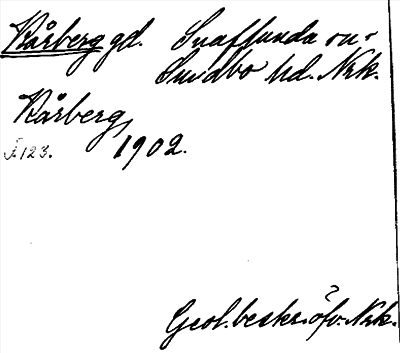 Kårberg gd. Snafflunda sn.
Sundbo hd. Nrk.
Kårberg,
J. 123. 1902.
Geol. beskr. öfv. Nrk.